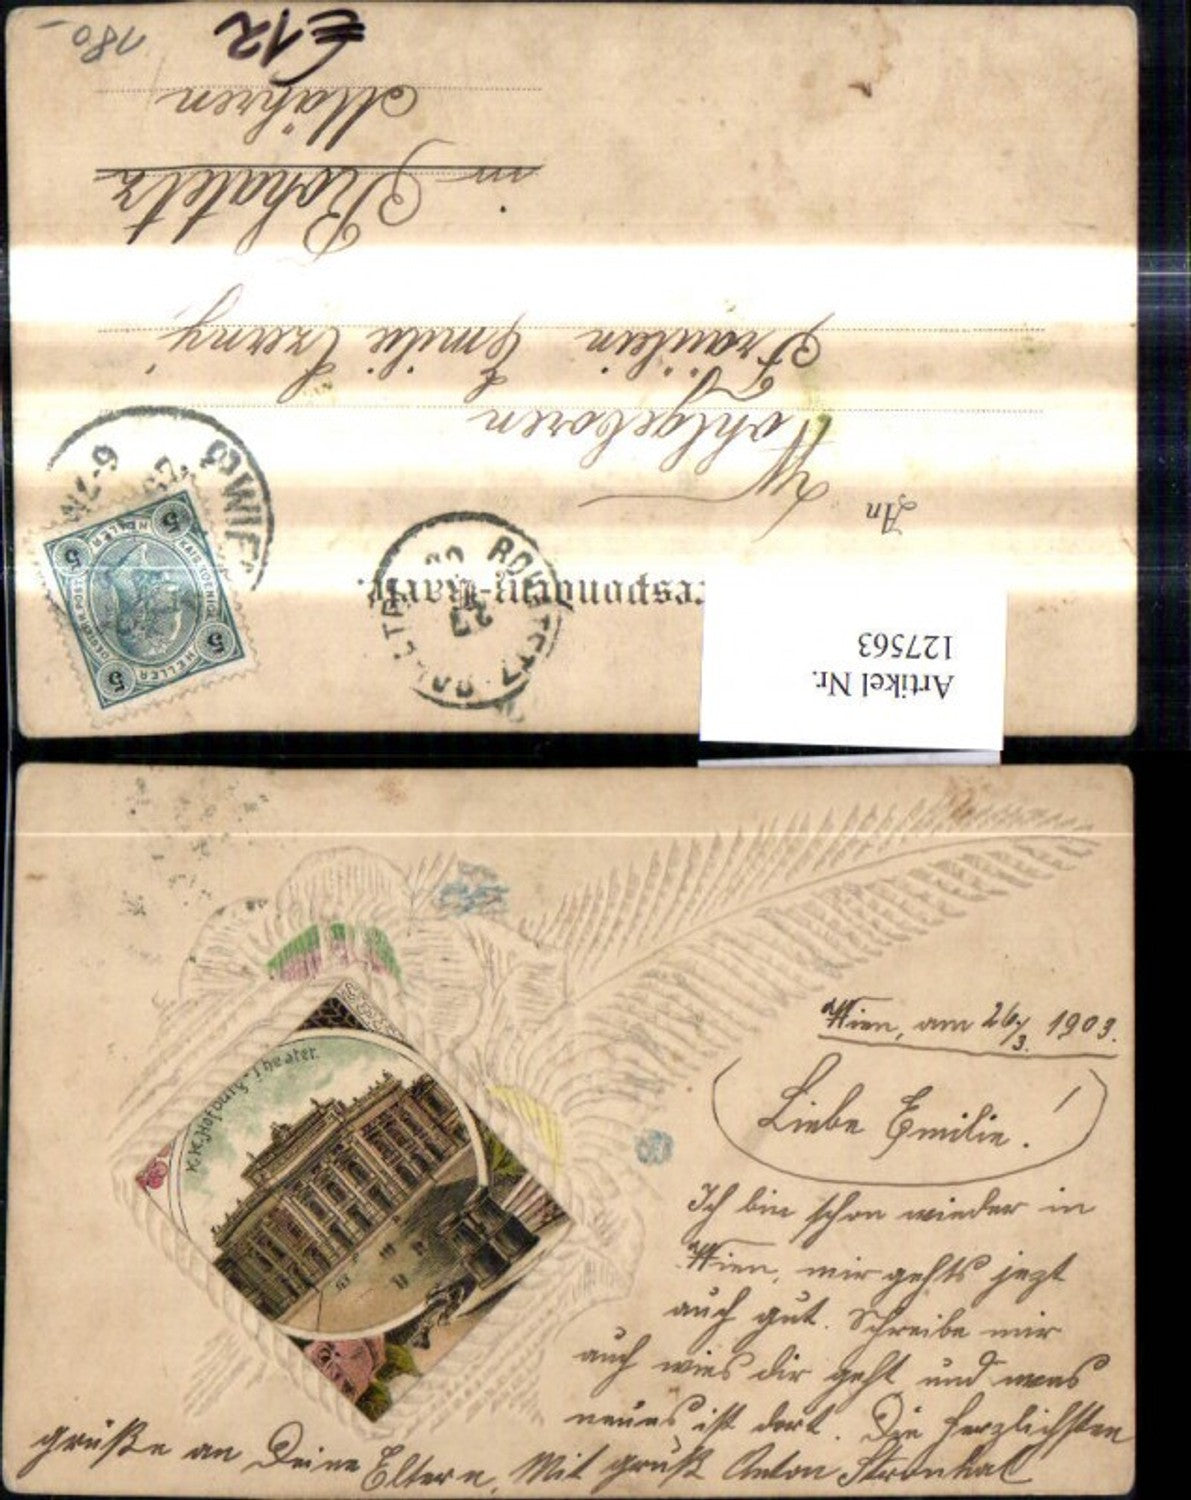 180-
€12
An
Wohlgeboren
Fräulein Emilie Czerny
in Rohatetz
Mähren
Artikel Nr.
127563
5 5
5 5
HELLER
HELLER
ROHATETZ
Wien, am 26/3. 1903.
Liebe Emilie!
K.K. Hofburg-Theater.
Ich bin schon wieder in
Wien, mir gehts jetzt
auch gut. Schreibe mir
auch wies dir geht und was
neues ist dort. Die herzlichsten
grüße an Deine Eltern. Mit gruß Anton